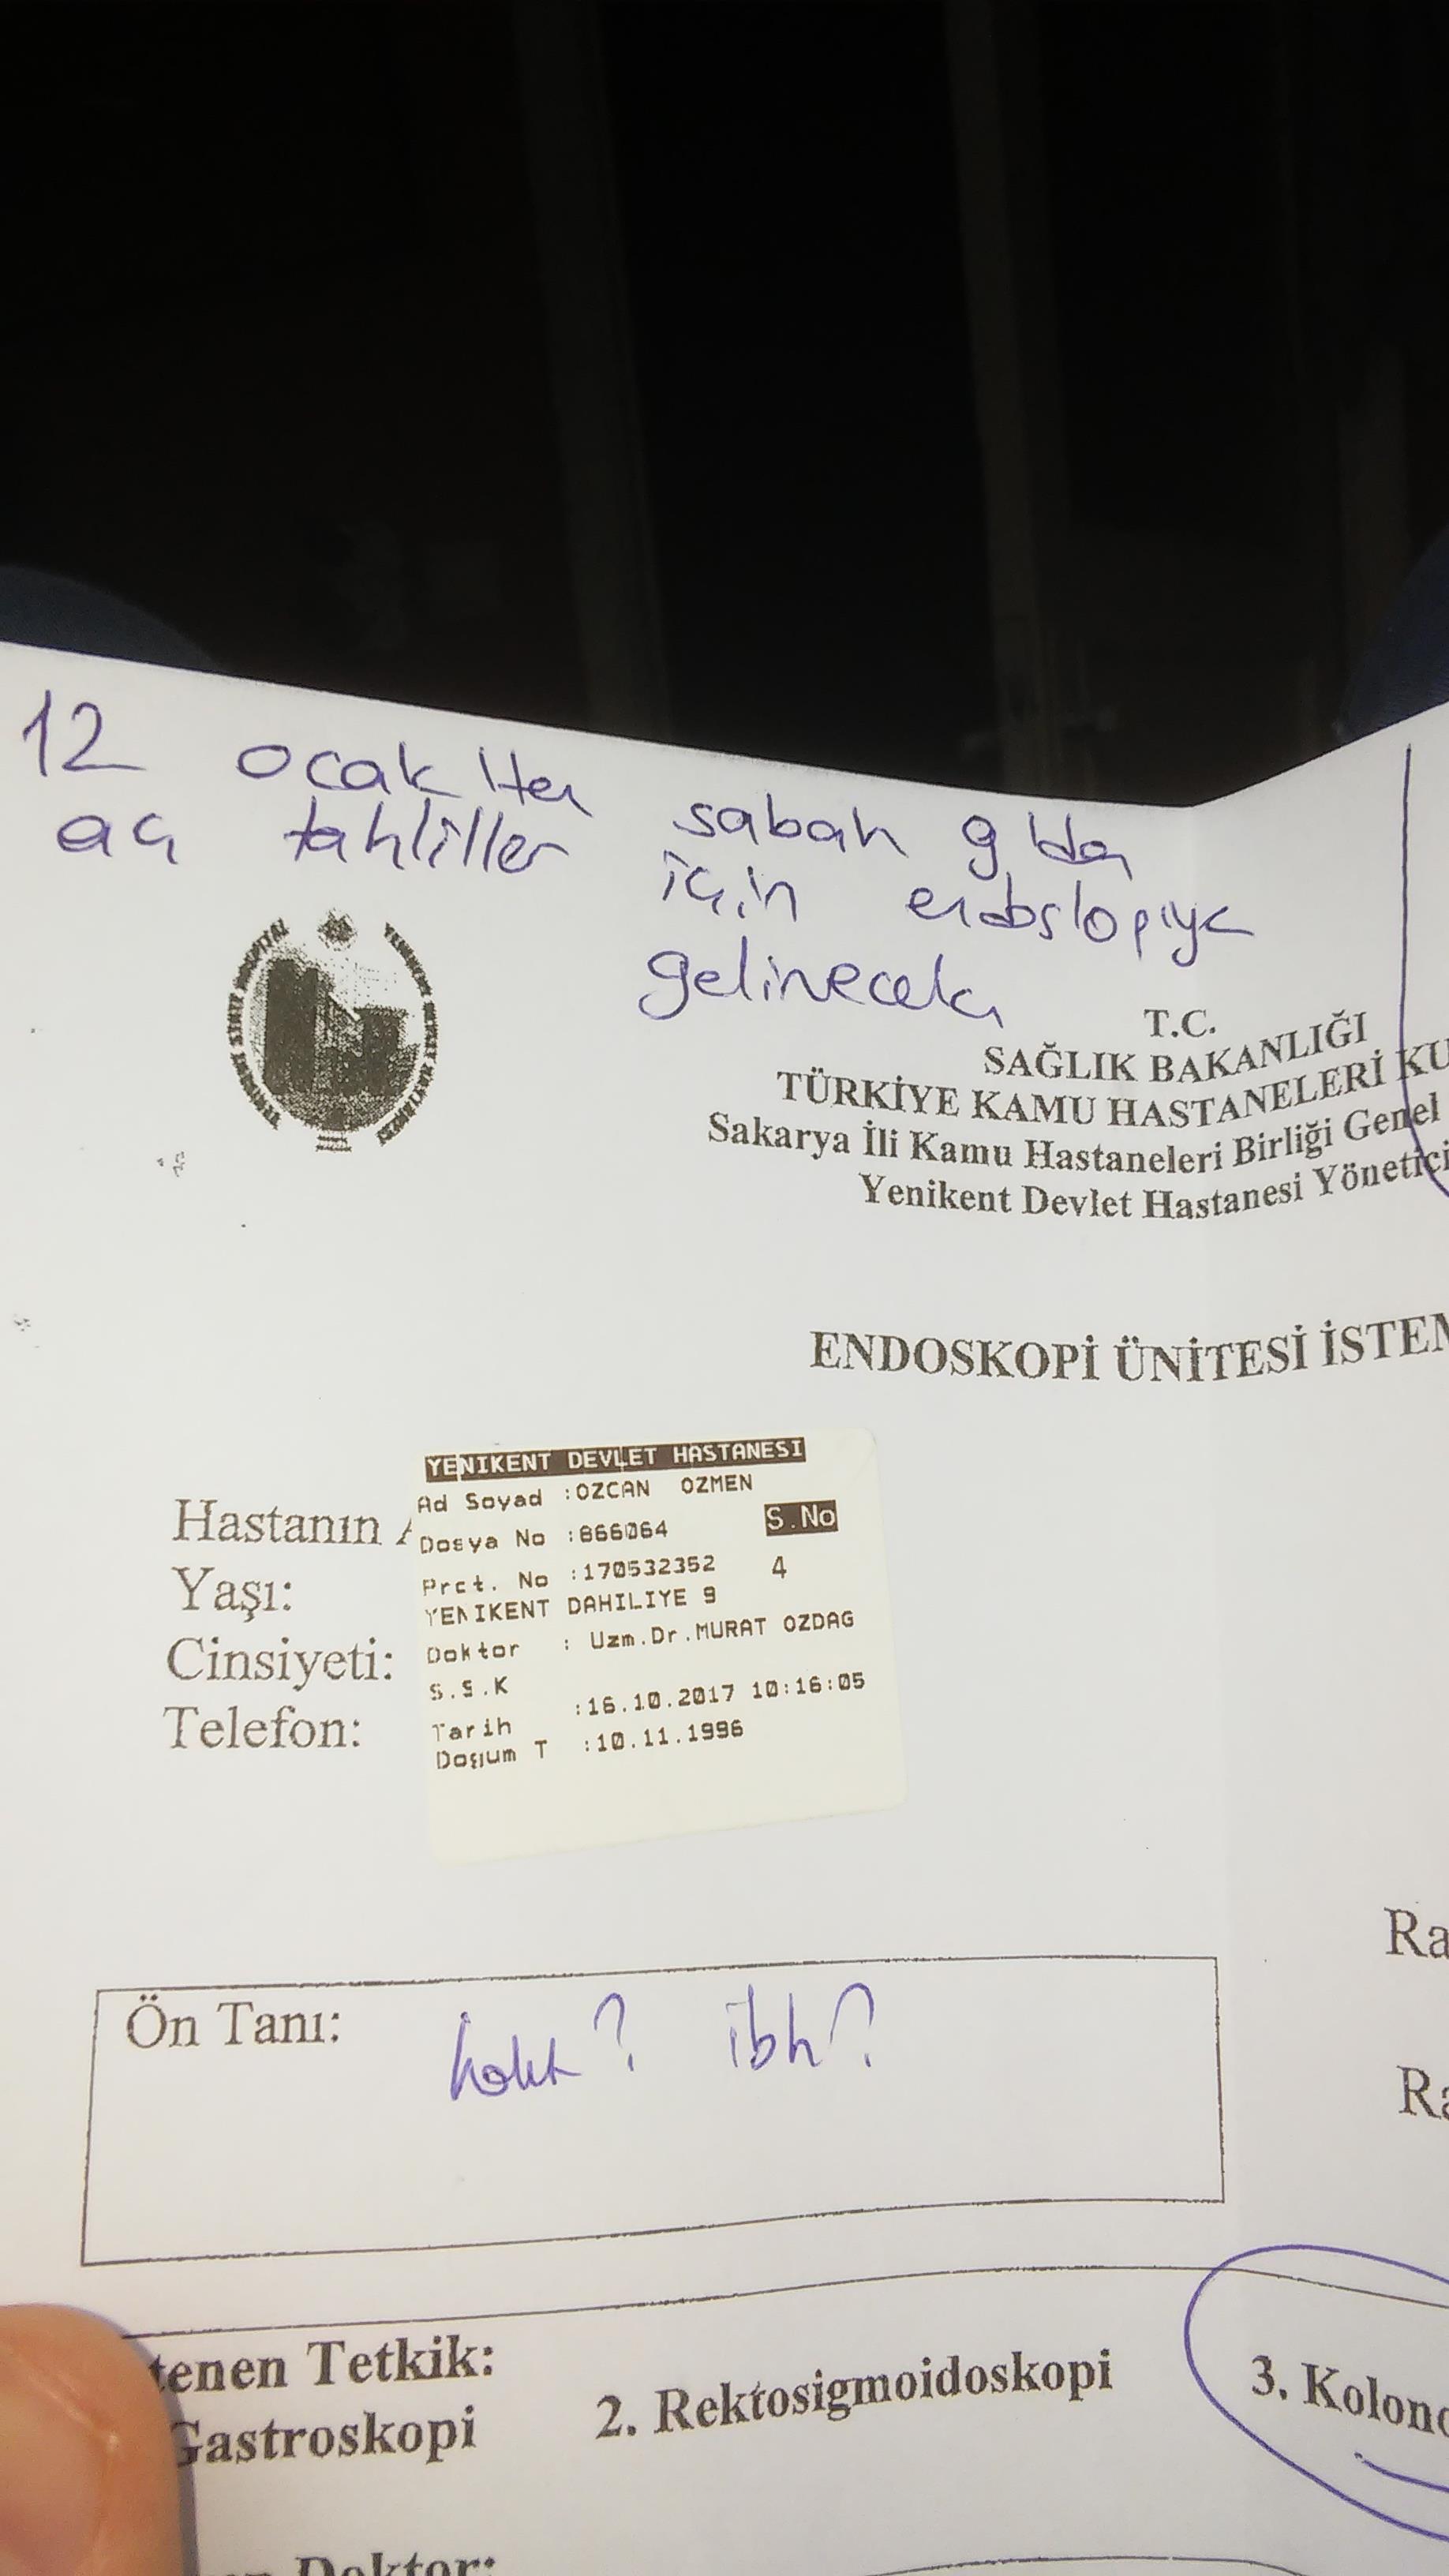 12 ocak
sabah 9
aç tahliller için
gelinecek
T.C.
SAĞLIK BAKANLIĞI
TÜRKİYE KAMU HASTANELERİ KU
Sakarya İli Kamu Hastaneleri Birliği Genel
Yenikent Devlet Hastanesi Yönetici
ENDOSKOPİ ÜNİTESİ İSTEM
YENIKENT DEVLET HASTANESI
Ad Soyad :OZCAN OZMEN
Dosya No :866064 S.No
Prct. No :170532352 4
YENIKENT DAHILIYE 9
Doktor : Uzm.Dr.MURAT OZDAG
S.S.K
Tarih :16.10.2017 10:16:05
Dogum T :10.11.1996
Hastanın
Yaşı:
Cinsiyeti:
Telefon:
Ra
Ön Tanı: ibh?
Ra
tenen Tetkik:
Gastroskopi 2. Rektosigmoidoskopi 3. Kolono
Doktor: